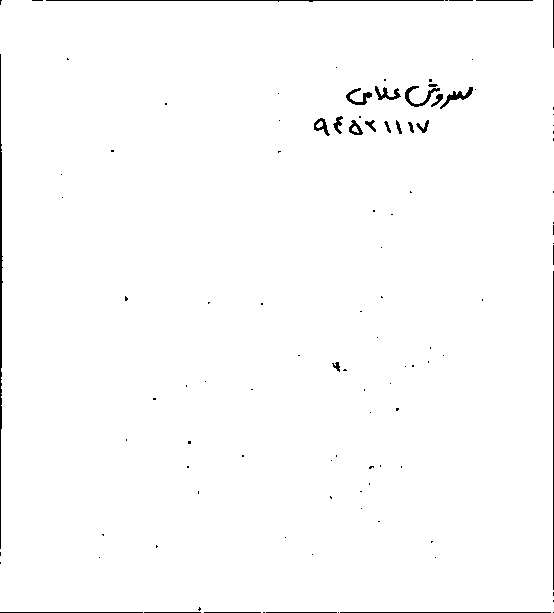 سروش غلامی
۹۴۵۲۱۱۱۷